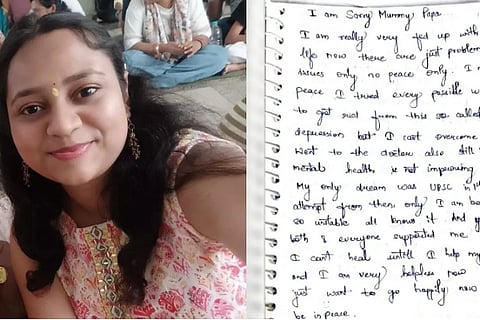 I am Sorry Mummy Papa
I am really very fed up with
life now there are just problem
issues only no peace only. I
peace I tried every possible
to get rid from this so calle
depression but I cant overcome
went to the doctor also still
mental health is not improving
My only dream was UPSC in
attempt from then only I am be
so unstable all knows it. And
both & everyone supported me
I can't heal untill I help my
and I am very helpless now
just want to go happily now
be in peace.